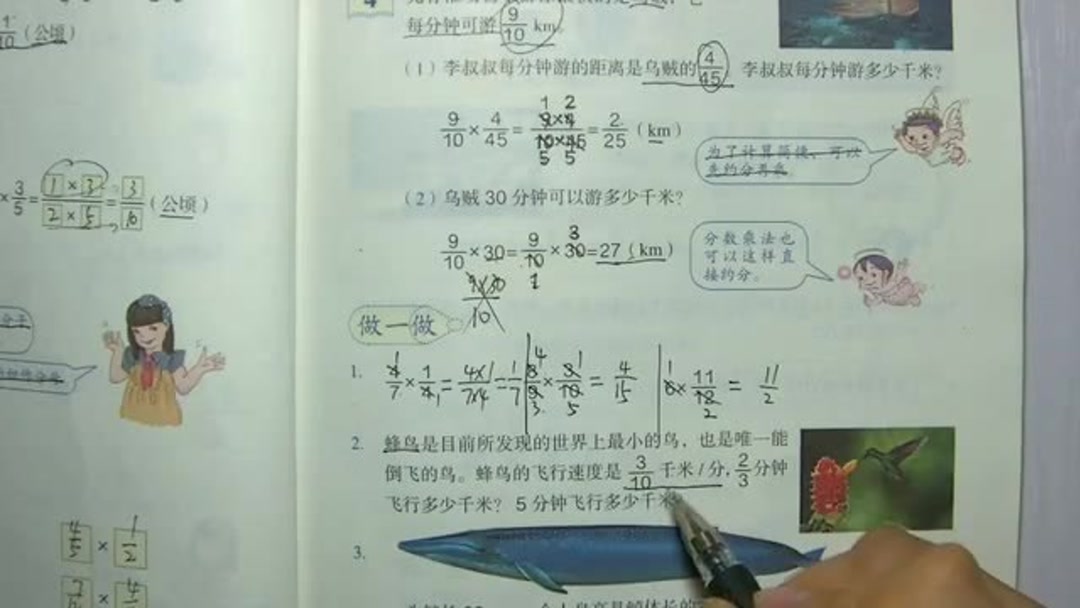 1/10 (公顷)
× 3/5 = 1×3/2×5 = 3/10 (公顷)
4/5 × 1/2
4
每分钟可游 9/10 km。
(1) 李叔叔每分钟游的距离是乌贼的 4/45。李叔叔每分钟游多少千米?
9/10 × 4/45 = 9×4/10×45 = 2/25 (km)
1 2
5 5
为了计算简便,可以
先约分再乘。
(2) 乌贼 30 分钟可以游多少千米?
9/10 × 30 = 9/10 × 30 = 27 (km)
3
1
9×30/10
分数乘法也
可以这样直
接约分。
做一做
1. 4/7 × 1/4 = 4×1/7×4 = 1/7
8/9 × 3/10 = 4/15
6 × 11/12 = 11/2
2. 蜂鸟是目前所发现的世界上最小的鸟,也是唯一能
倒飞的鸟。蜂鸟的飞行速度是 3/10 千米/分,2/3 分钟
飞行多少千米? 5 分钟飞行多少千米
3.